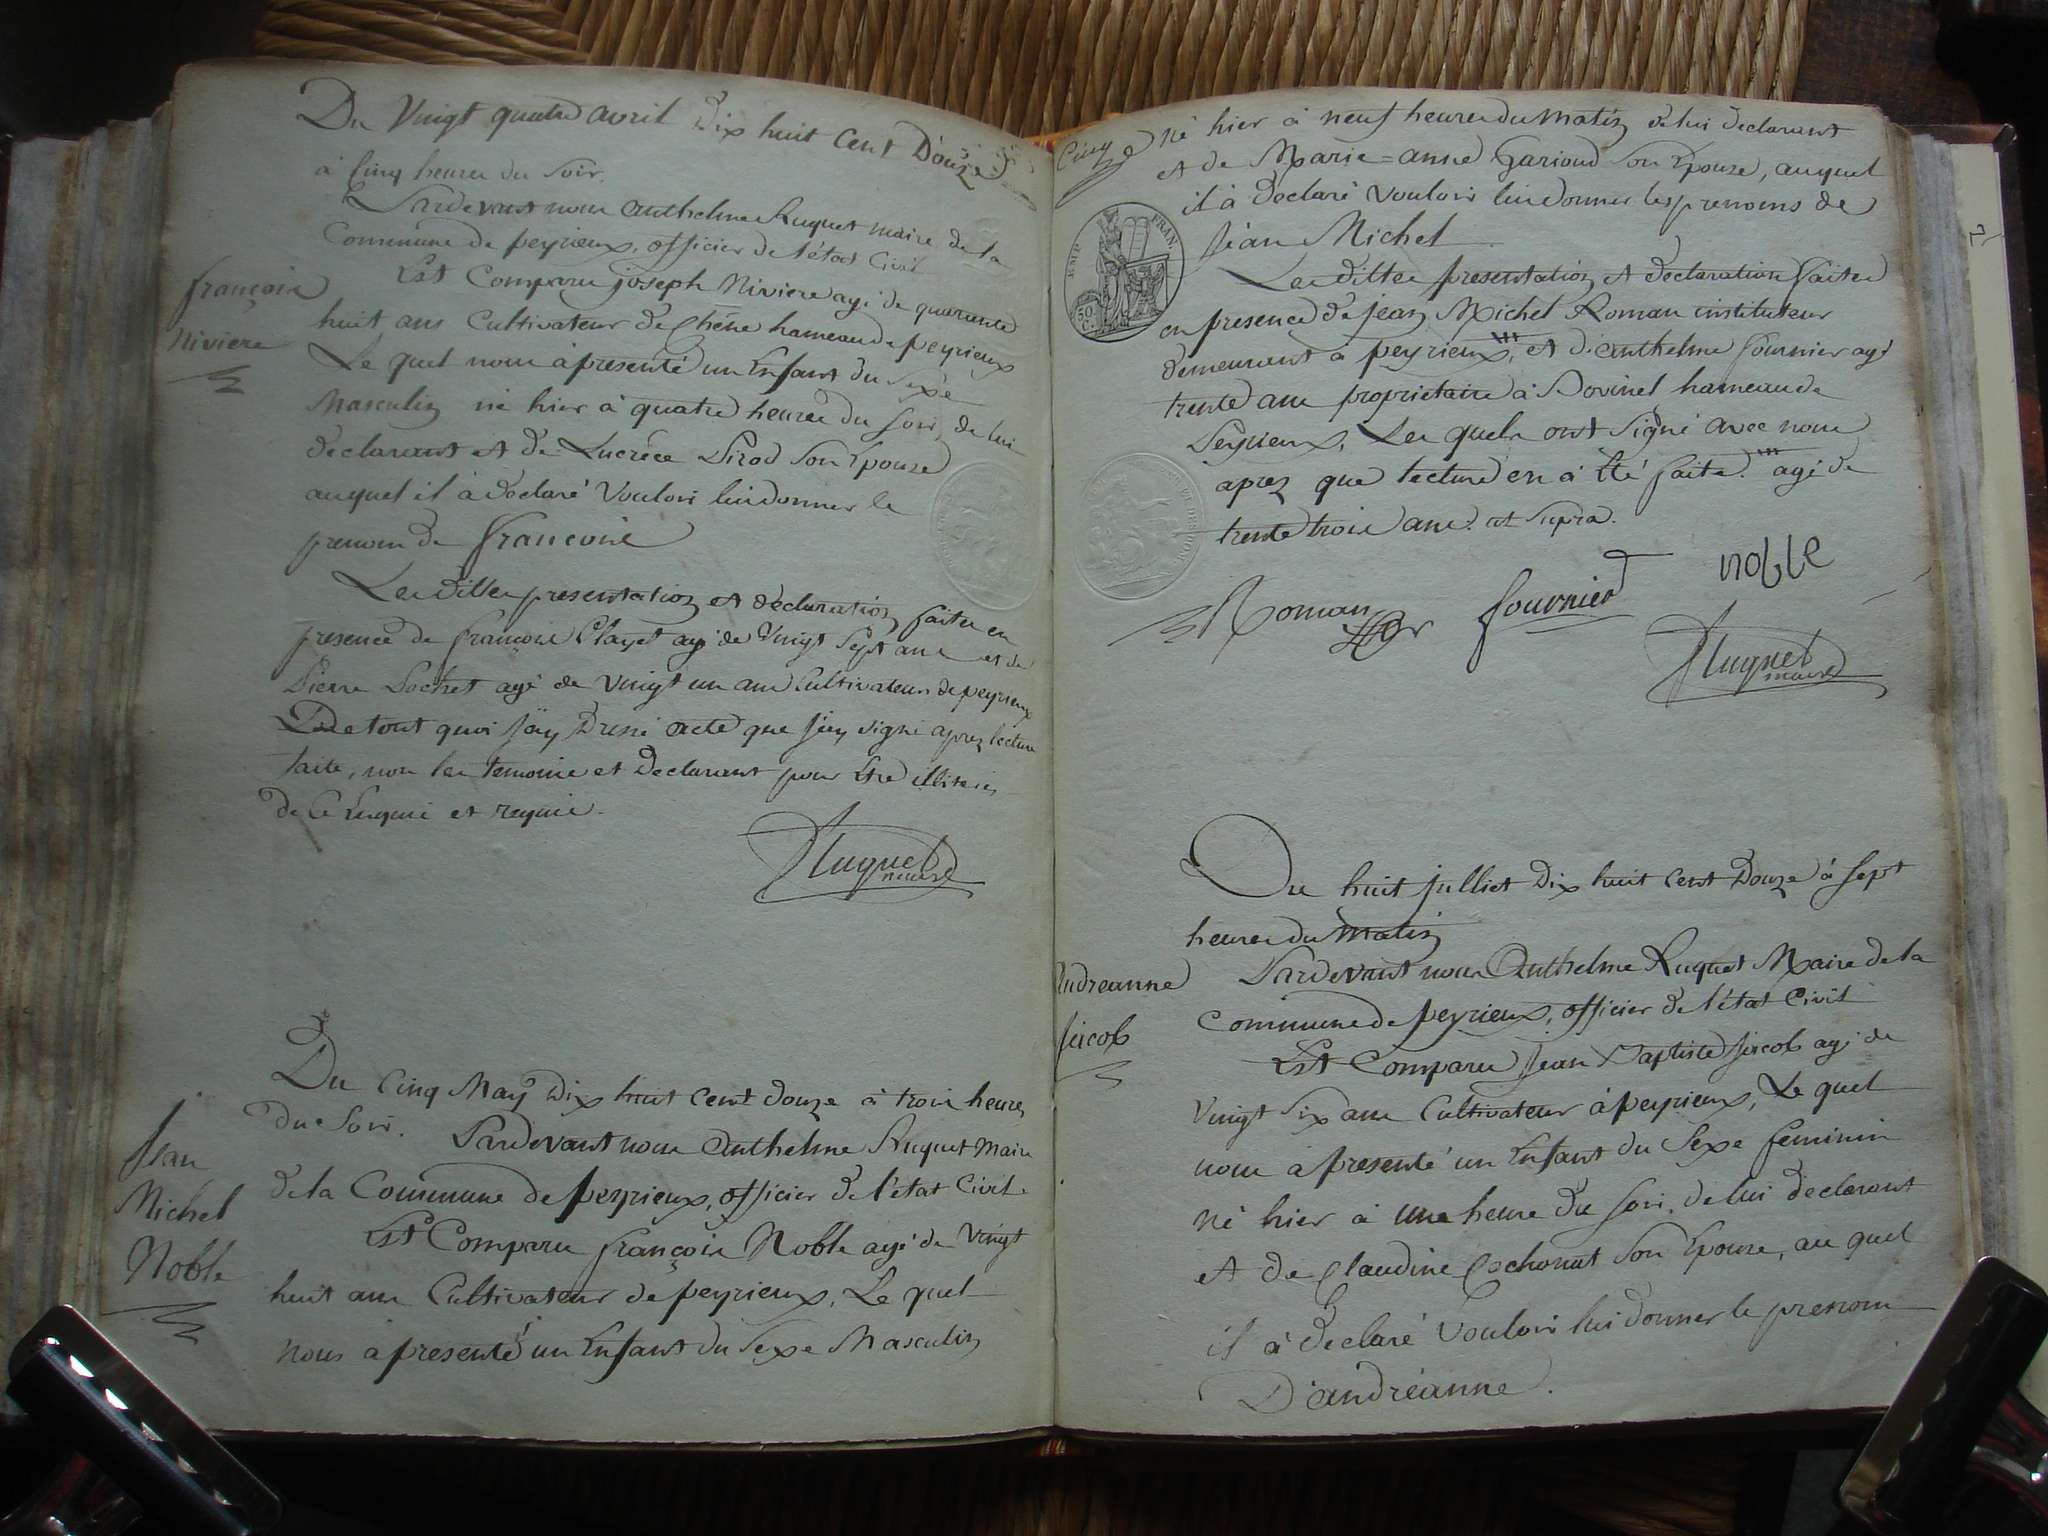 Du Vingt quatre avril Dix huit Cent Douze
à Cinq heures du Soir.
Pardevant nous Anthelme Ruquet maire de la
Commune de peyrieux, officier de l'état Civil
Est Comparu joseph Niviere agé de quarante
huit ans Cultivateur de Chêne hameau de peyrieux
Le quel nous à presenté un Enfant du Sexe
Masculin né hier à quatre heures du Soir, de lui
declarant et de Lucrèce Pirod Son Epouse
auquel il à declaré Vouloir lui donner le
prenom de françois
françois
Niviere
Les dittes presentation et declaration faites en
presence de françois Clayet agé de Vingt Sept ans et de
Pierre Pochet agé de Vingt un ans Cultivateurs de peyrieux
De tout quoi j'ay Dressé acte que j'ay signé aprez lecture
faite, non les temoins et declarant pour Etre illiterés
de Ce Enquis et requis.
Ruquet
maire
Du Cinq May Dix huit Cent douze à trois heures
du Soir. Pardevant nous Anthelme Ruquet Maire
de la Commune de peyrieux, officier de l'état Civil
Est Comparu françois Noble agé de Vingt
huit ans Cultivateur de peyrieux, Le quel
nous à presenté un Enfant du Sexe Masculin
Jean
Michel
Noble
Cinq
né hier à neuf heures du Matin de lui declarant
et de Marie=anne Garioud Son Epouse, auquel
il à declaré Vouloir lui donner les prenoms de
Jean Michel
EMP. FRAN.
50 C.
Les dittes presentation et declaration faites
en presence de jean Michel Roman instituteur
demeurant à peyrieux, et d'anthelme fournier agé
trente ans propriétaire à Sovinel hameau de
Peyrieux, Les quels ont signé avec nous
aprez que lecture en à Eté faite. agé de
trente trois ans. ut Supra.
Roman fournier noble
Ruquet
maire
Du huit julliet Dix huit Cent Douze à Sept
heures du Matin
Pardevant nous Anthelme Ruquet Maire de la
Commune de peyrieux, officier de l'état Civil
Est Comparu Jean Baptiste Jacob agé de
Vingt Six ans Cultivateur à peyrieux, Le quel
nous à presenté un Enfant du Sexe feminin
né hier à une heure du Soir, de lui declarant
et de Claudine Cochonat Son Epouse, au quel
il à declaré Vouloir lui donner le prenom
D'andréanne.
Andreanne
Jacob